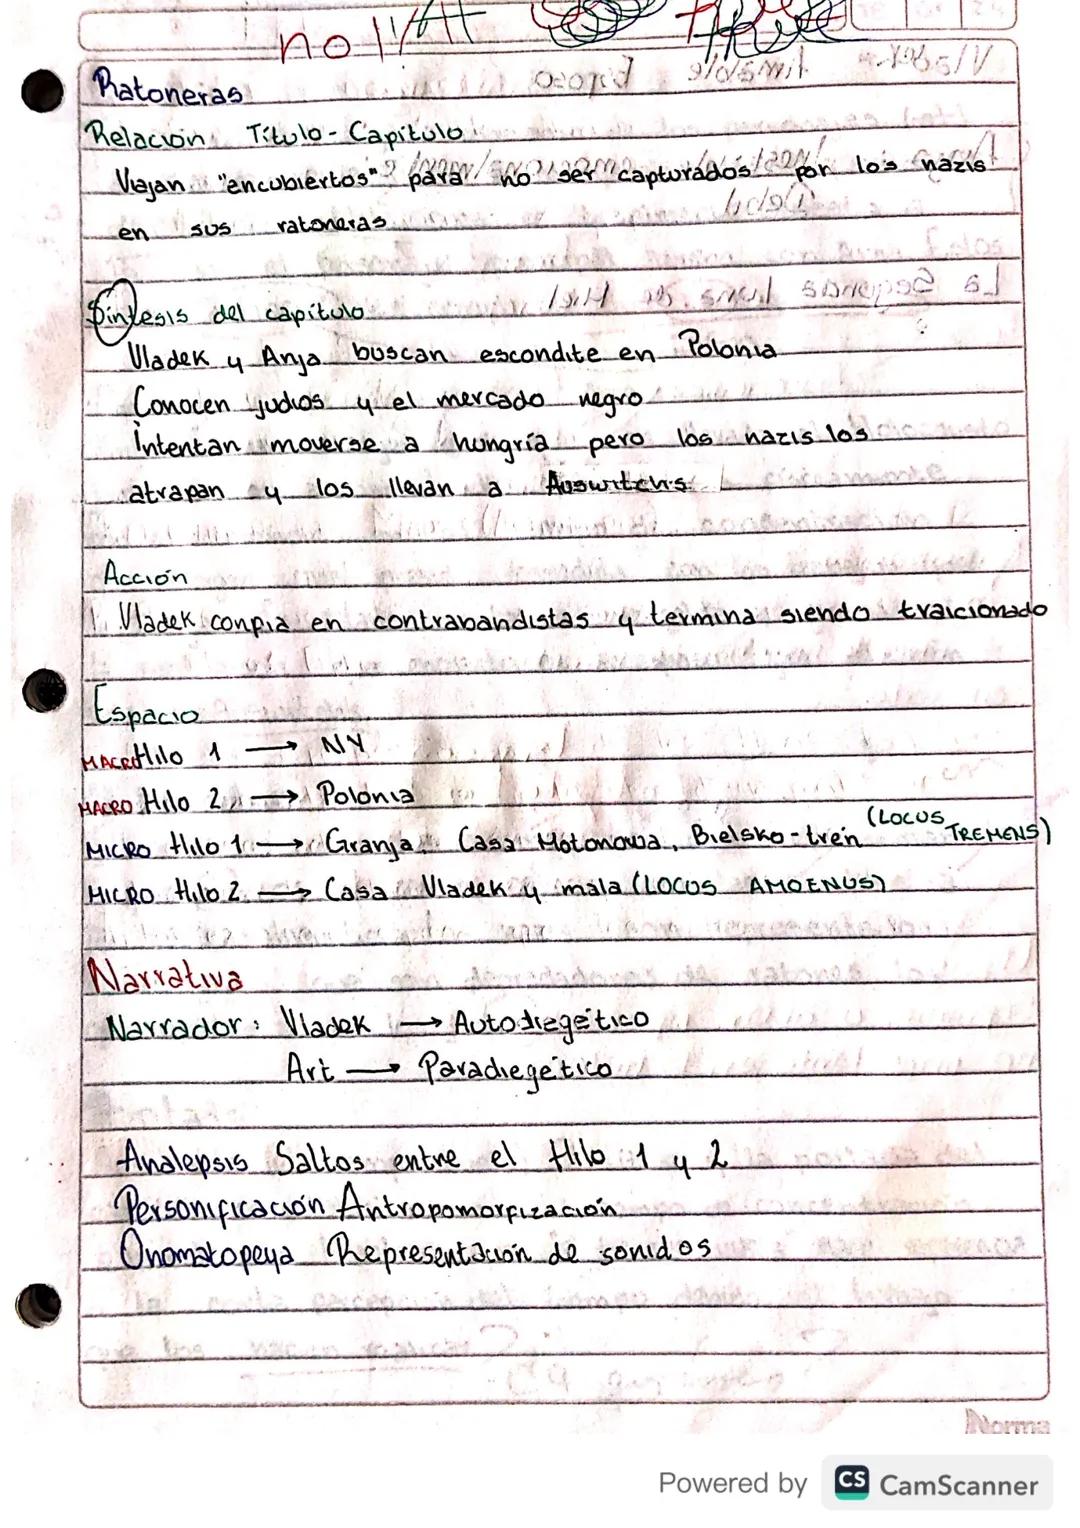 Ratoneras
Relación Título - Capítulo
Viajan "encubiertos" para no ser capturados por los nazis
en sus ratoneras
Síntesis del capítulo
Vladek y Anja buscan escondite en Polonia
Conocen judios y el mercado negro
Intentan moverse a hungría pero los nazis los
atrapan y los llevan a Auswitchs
Acción
1. Vladek conpia en contrabandistas y termina siendo traicionado
Espacio
MACRO Hilo 1 → NY
MACRO Hilo 2 → Polonia
MICRO Hilo 1 → Granja, Casa Motonowa, Bielsko-tren (LOCUS TREMENS)
MICRO Hilo 2 → Casa Vladek y mala (LOCUS AMOENUS)
Narrativa
Narrador: Vladek → Autodiegético
Art → Paradiegético
Analepsis Saltos entre el Hilo 1 y 2
Personificación Antropomorfización
Onomatopeya Representación de sonidos
Norma
Powered by CS CamScanner